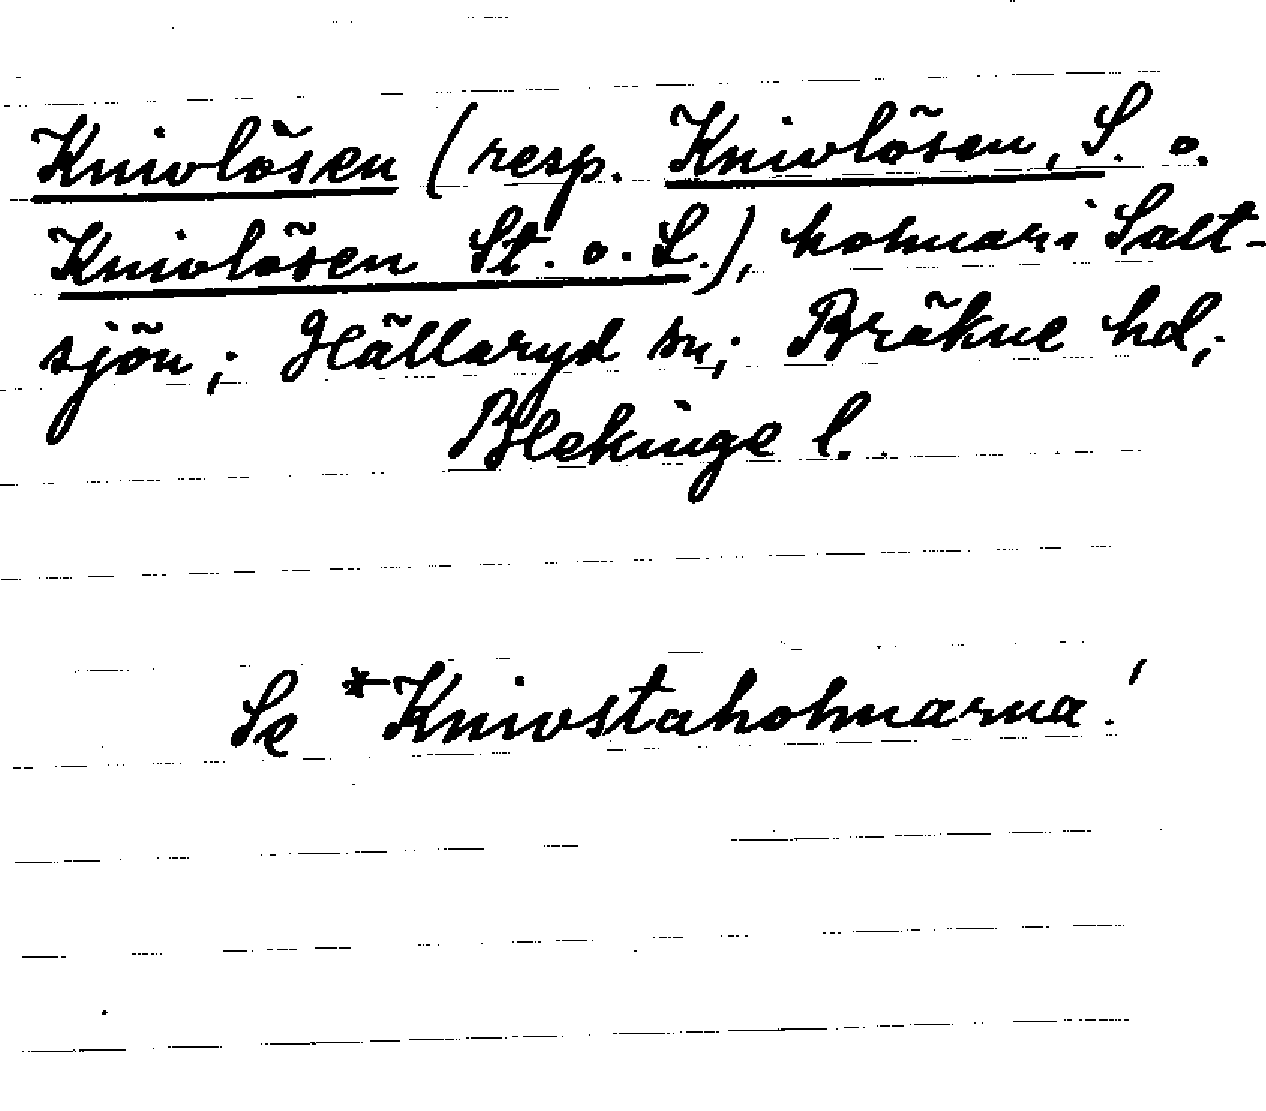 Knivlösen (resp. Knivlösen, S. o.
Knivlösen St. o. L.), holmar i Salt-
sjön; Hällaryd sn; Bräkne hd;
Blekinge l.
Se *Knivstaholmarna!